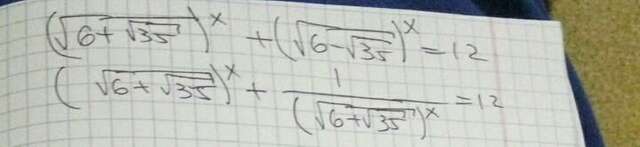 (√(6+√35))^x + (√(6-√35))^x = 12
(√(6+√35))^x + 1/(√(6+√35))^x = 12